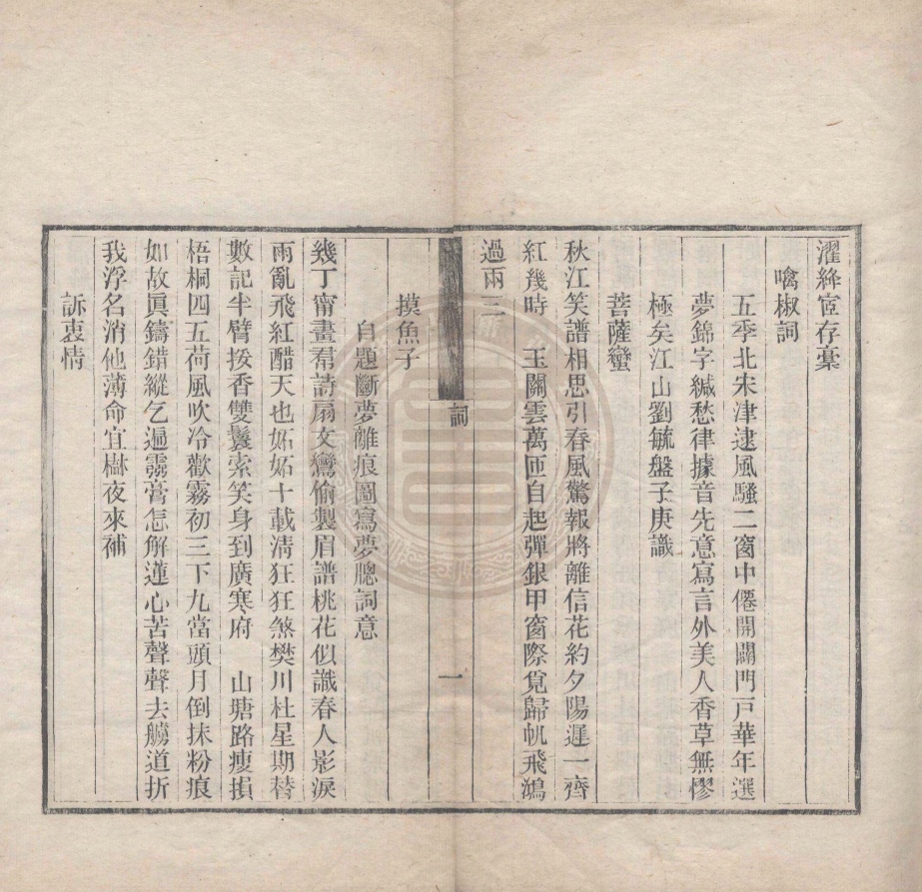 濯絳宧存稾
噙椒詞
五季北宋津逮風騷二窗中僊開闢門戸華年選
夢錦字緘愁律據音先意寫言外美人香草無憀
極矣江山劉毓盤子庚識
菩薩蠻
秋江笑譜相思引春風驚報將離信花約夕陽遲一齊
紅幾時　玉關雲萬匝自起彈銀甲窗際覓歸帆飛鴻
過兩三
詞
一
摸魚子
自題斷夢離痕圖寫夢聰詞意
幾丁甯畫帬詩扇文鸞偷製眉譜桃花似識春人影淚
雨亂飛紅醋天也妬妬十載清狂狂煞樊川杜星期替
數記半臂授香雙鬟索笑身到廣寒府　山塘路瘦損
梧桐四五荷風吹冷歡霧初三下九當頭月倒抹粉痕
如故眞鑄錯縱乞遍靈膏怎解蓮心苦聲聲去艣道折
我浮名消他薄命宜櫱夜來補
訴衷情